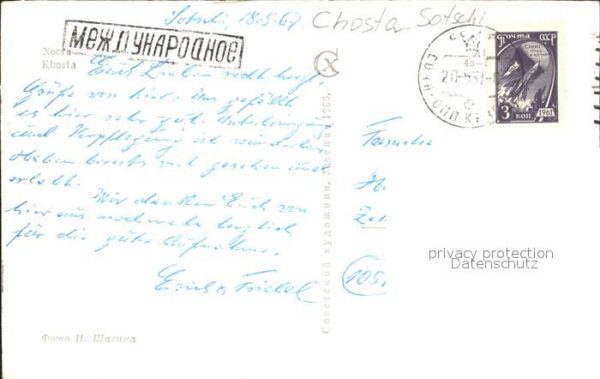 Sotschi, 18.5.67
Chosta Sotschi
МЕЖДУНАРОДНОЕ
Хоста
Khosta
Euch Lieben recht herzl.
Grüße von hier. Uns gefällt
es hier sehr gut. Unterbringung
und Verpflegung ist wunderbar.
Haben bereits viel gesehen und
erlebt.
Wir danken Euch von
hier aus nochmals herzlich
für die gute Aufnahme.
Erich &
почта СССР
3 КОП 1961
Familie
H.
Zei
105
Советский художник. Москва. 1966.
Фото И. Шагина
privacy protection
Datenschutz